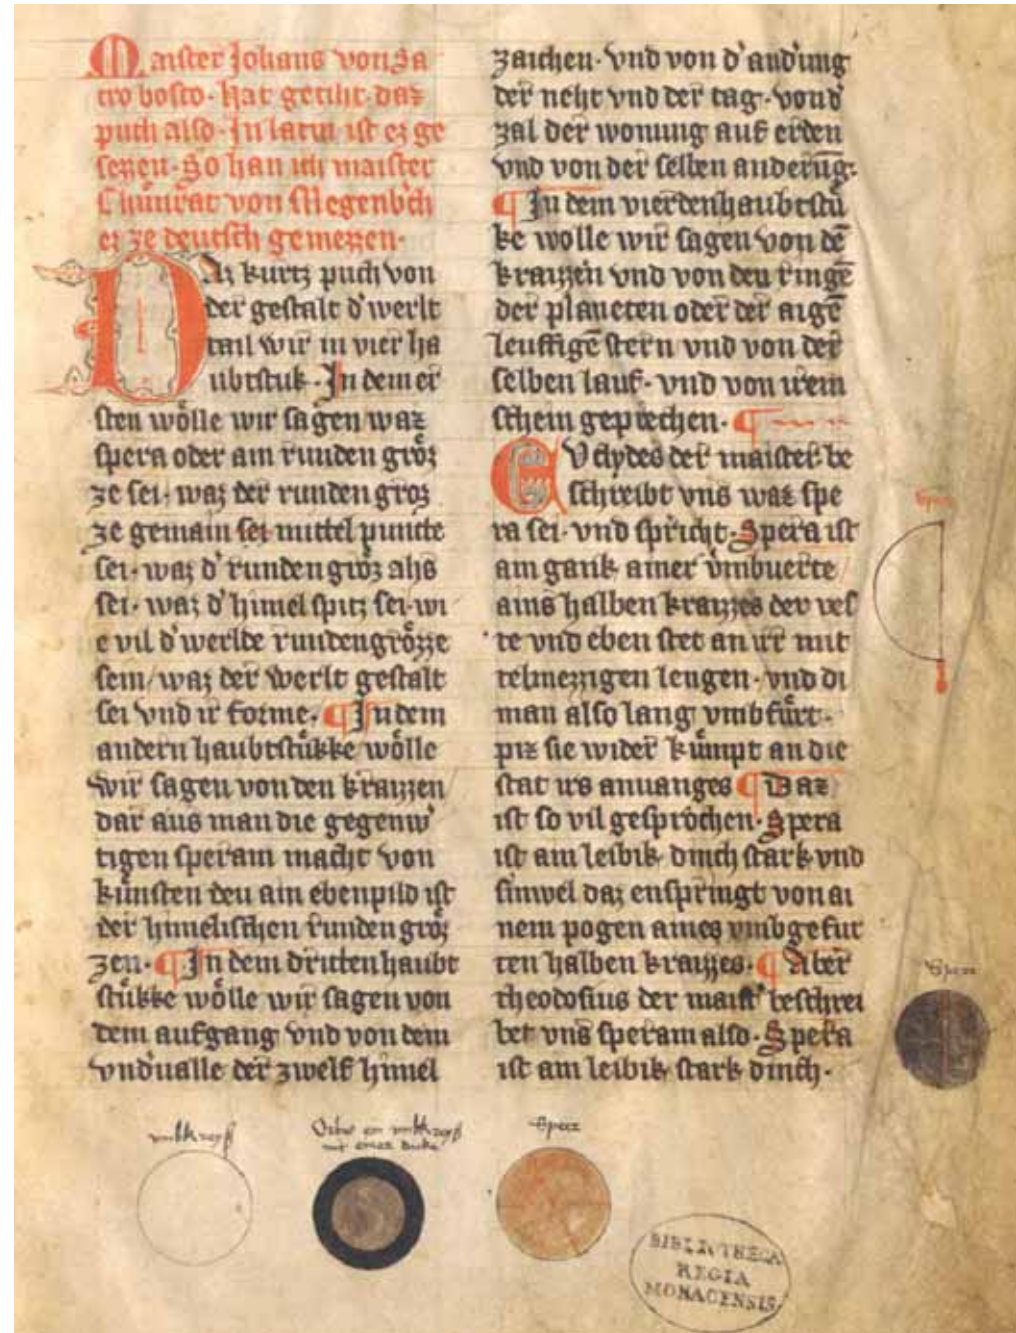 Maister Johans von Sa
cro bosco· hat getiht· daz
puch also· Jn latin ist ez ge
sezzen· So han ich maister
Chůnrat von Megenbˢch
ez ze deutsch gemezzen·
Daz kurtz puch von
der gestalt dˀ werlt
tail wir in vier ha
ubtstuk· Jn dem er
sten wőlle wir sagen waz
spera oder ain runden grőz
ze sei· waz der runden groz
ze gemain sei mittel puncte
sei· waz dˀ runden grőz ahs
sei· waz dˀ himel spitz sei· wi
e vil dˀ werlde runden grőzze
sein/ waz der werlt gestalt
sei vnd ir forme· ¶ Jn dem
andern haubtstůkke wőlle
wir sagen von den kraizzen
dar aus man die gegenwˀ
tigen speram macht von
kůnsten deu ain ebenpild ist
der himelischen runden grőz
zen· ¶ Jn dem dritten haubt
stůkke wőlle wir sagen von
dem aufgang vnd von dem
vndˀualle der zwelf himel
zaichen· vnd von dˀ andˀung
der neht vnd der tag· von dˀ
zal der wonung auf erden
vnd von der selben anderūg·
¶ Jn dem vierden haubtstů
ke wolle wir sagen von dē
kraizzen vnd von den ringē
der planeten oder der aigē
leuffigē stern vnd von der
selben lauf· vnd von irem
schein geprechen· ¶
Euclydes der maister be
schreibt vns waz spe
ra sei· vnd spricht· Spera ist
ain gank ainer vmbuerte
ains halben kraizzes dev ves
te vnd eben stet an irr mit
telmezzigen lengen· vnd di
man also lang vmbfůrt·
piz sie wider kůmpt an die
stat irs anuanges ¶ Daz
ist so vil gesprochen· Spera
ist ain leibik dinch stark vnd
sinwel daz enspringt von ai
nem pogen aines vmbgefur
ten halben kraizzes· ¶ Aber
theodosius der maistˀ beschrei
bet vns speram also· Spera
ist ain leibik stark dinch·
Spera
Spera
vmbkrayß
Orbis ein vmbkrayß
mit einer dicke
Spera
BIBLIOTHECA
REGIA
MONACENSIS·